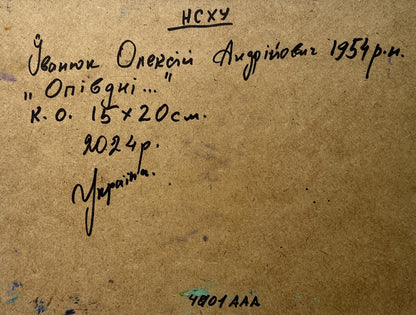 НСХУ
Іванюк Олексій Андрійович 1954 р.н.
„Опівдні..."
к. о. 15 х 20 см.
2024 р.
Україна.
4901 ААА